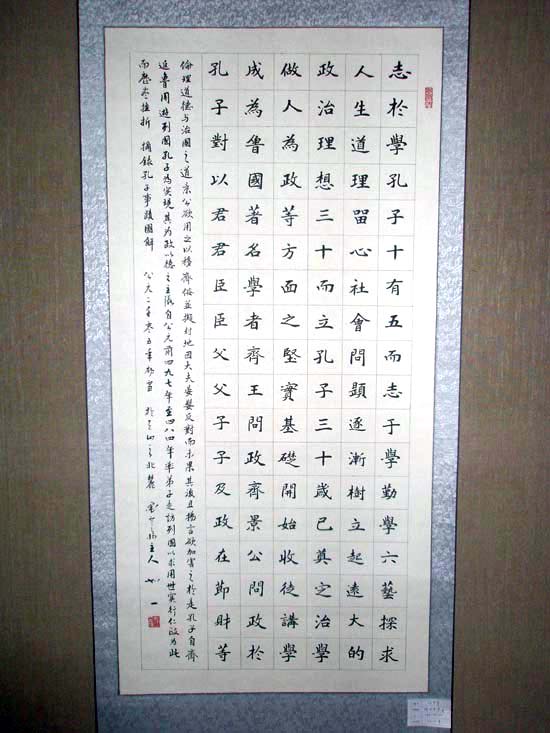 志於學孔子十有五而志于學勤學六藝探求
人生道理留心社會問題逐漸樹立起遠大的
政治理想三十而立孔子三十歲已奠定治學
做人為政等方面之堅實基礎開始收徒講學
成為魯國著名學者齊王問政齊景公問政於
孔子對以君君臣臣父父子子及政在節財等
倫理道德与治國之道景公欲用之以移齊俗並擬封地因大夫晏嬰反對而未果其後且揚言欲加害之於是孔子自齊
返魯周遊列國孔子為實現其為政以德之主張自公元前四九七年至四八四年率弟子走訪列國以求用世實行仁政為此
而歷盡挫折 摘錄孔子事蹟圖解 公元二千零五年 於 山之北麓 主人